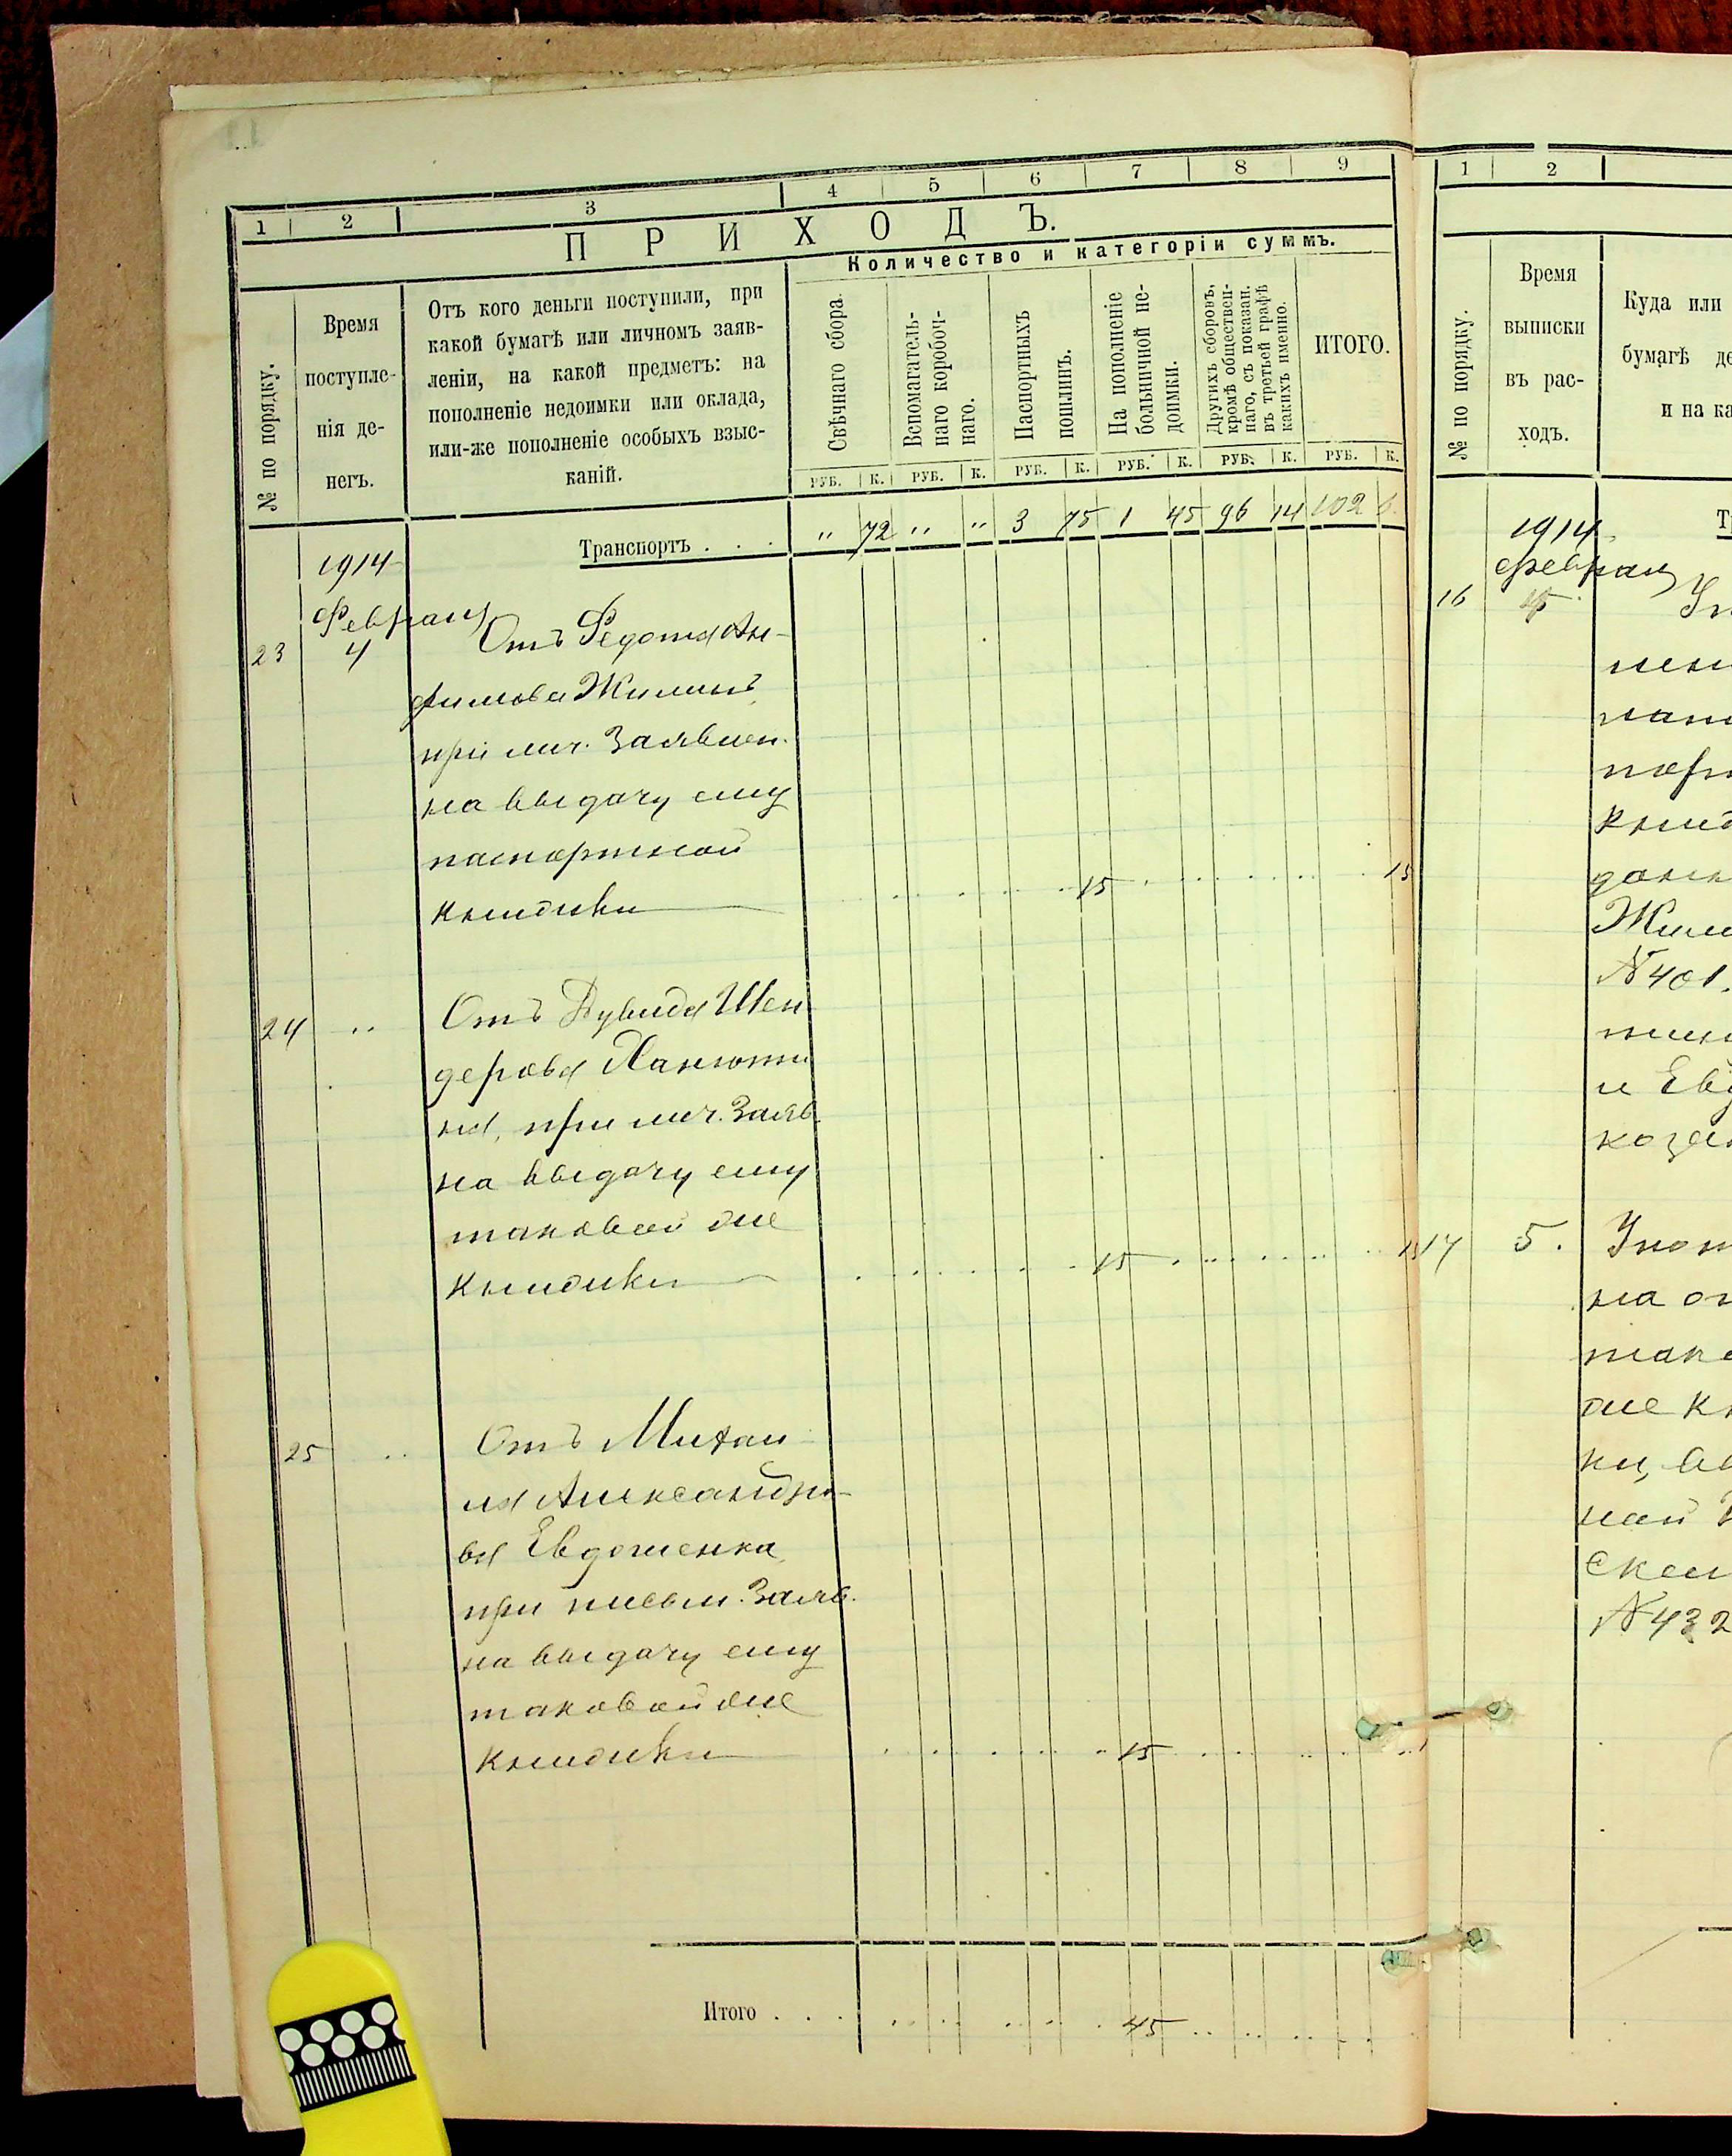 1 2 3 4 5 6 7 8 9
ПРИХОДЪ.
Количество и категоріи суммъ.
№ по порядку.
Время
поступле-
нія де-
негъ.
Отъ кого деньги поступили, при
какой бумагѣ или личномъ заяв-
леніи, на какой предметъ: на
пополненіе недоимки или оклада,
или-же пополненіе особыхъ взыс-
каній.
Свѣчнаго сбора.
Вспомагатель-
наго коробоч-
наго.
Паспортныхъ
пошлинъ.
На пополненіе
больничной не-
доимки.
Другихъ сборовъ,
кромѣ обществен-
наго, съ показан.
въ третьей графѣ
какихъ именно.
ИТОГО.
РУБ. К. РУБ. К. РУБ. К. РУБ. К. РУБ. К. РУБ. К.
Транспортъ . . . " 72 " " 3 75 1 45 96 14 102 6
1914
Февраля
23 4 Отъ Федота Ан-
фимова Жилина
при лич. Заявлен.
на выдачу ему
паспортной
книжки 15 15
24 " Отъ Дувида Шен
дерова Ханюти
на, при лич. Заяв.
на выдачу ему
таковой же
книжки 15 15
25 " Отъ Михаи
ла Александро-
ва Евдошенка
при письм. Заяв.
на выдачу ему
таковой же
книжки 15
Итого . . . 45
1 2
№ по порядку.
Время
выписки
въ рас-
ходъ.
Куда или
бумагѣ
и на
1914
февраля
16
Жили
№ 401.
и
17 5.
на
же
№ 432